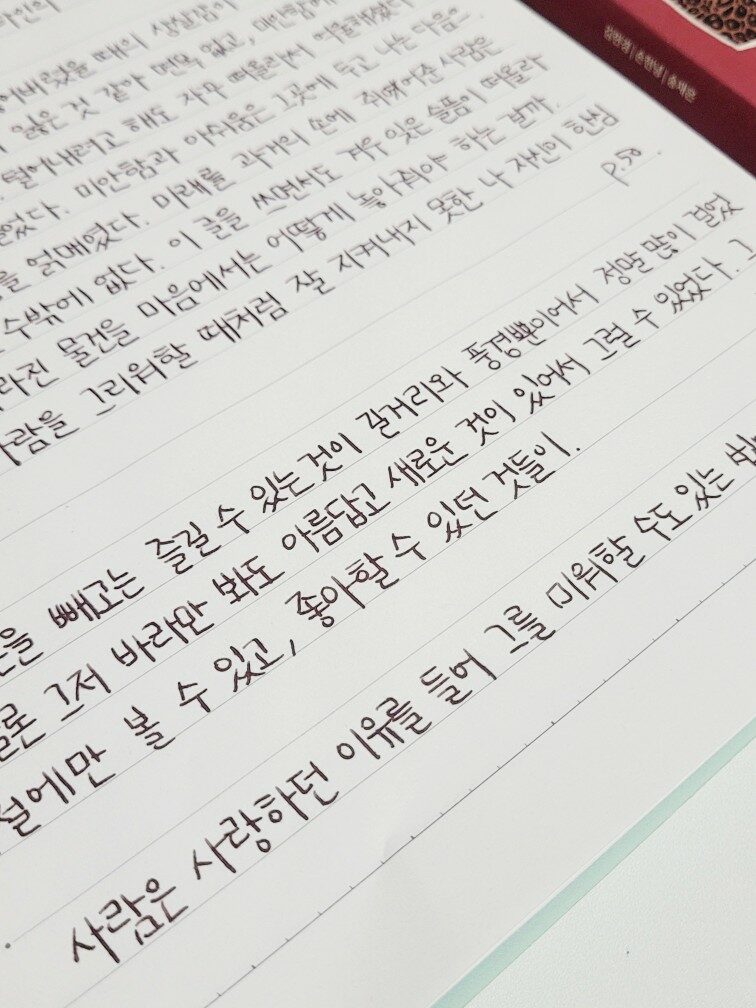 김민경 | 손한녕 | 송재은
라인의
어버렸을 때의 상실감이
잃은 것 같아 면목 없고, 미안함에
떨어내려고 해도 자꾸 떠올라서 어쩔해졌다
들었다. 미안함과 아쉬움은 그곳에 두고 나는 다음으
를 얽매였다. 미래를 과거의 손에 쥐여준 사람은
수밖에 없다. 이 글을 쓰면서도 겨우 잊은 슬픔이 떠올라
라진 물건을 마음에서는 어떻게 놓아줘야 하는 걸까.
사람을 그리워할 때처럼 잘 지켜내지 못한 나 자신이 한심
p.50.
을 빼고는 즐길 수 있는 것이 길거리와 풍경뿐이어서 정말 많이 걸었
물론 그저 바라만 봐도 아름답고 새로운 것이 있어서 그럴 수 있었다. 그
절에만 볼 수 있고, 좋아할 수 있던 것들이.
사람은 사랑하던 이유를 들어 그를 미워할 수도 있는